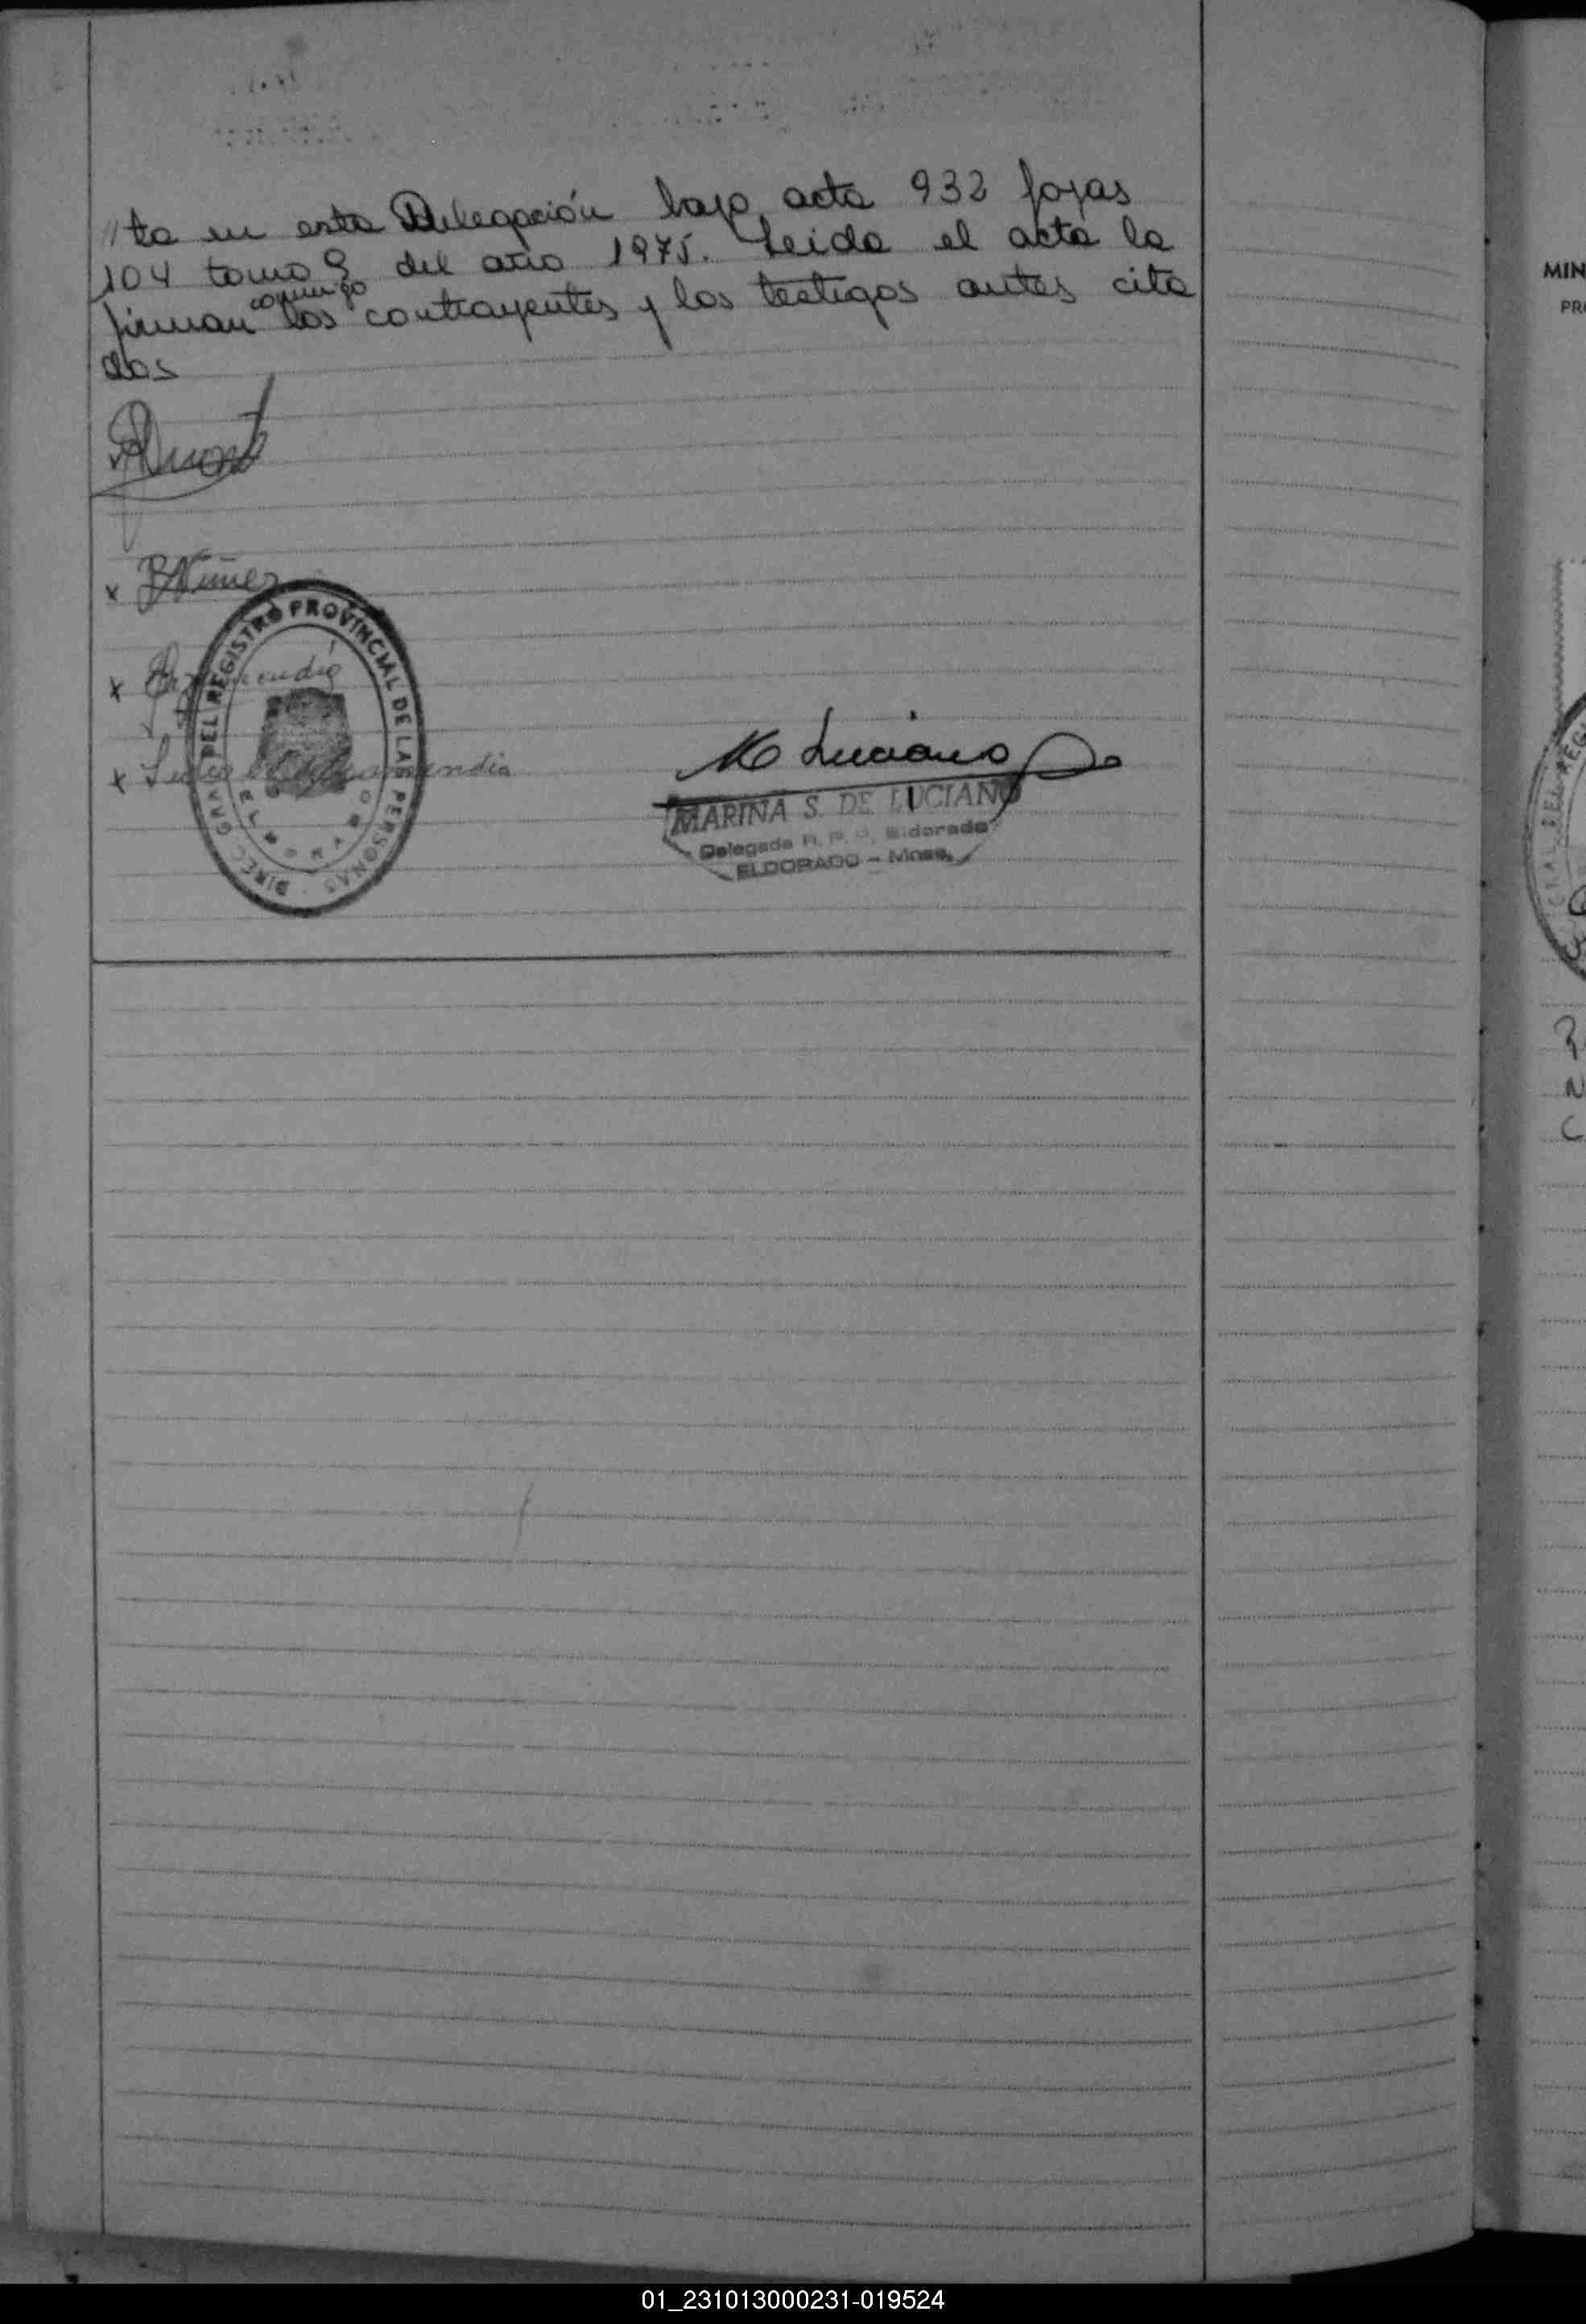 "ta en esta Delegación bajo acta 932 fojas
104 tomo 9 del año 1975. Leida el acta la
firman conmigo los contrayentes y los testigos antes cita
dos
x Nuñez
x
x
M Luciano
MARINA S. DE LUCIANO
Delegada R. P. P. Eldorado
ELDORADO - Mnes.
DIREC. GRAL. DEL REGISTRO PROVINCIAL DE LAS PERSONAS
MIN
PR
01_231013000231-019524